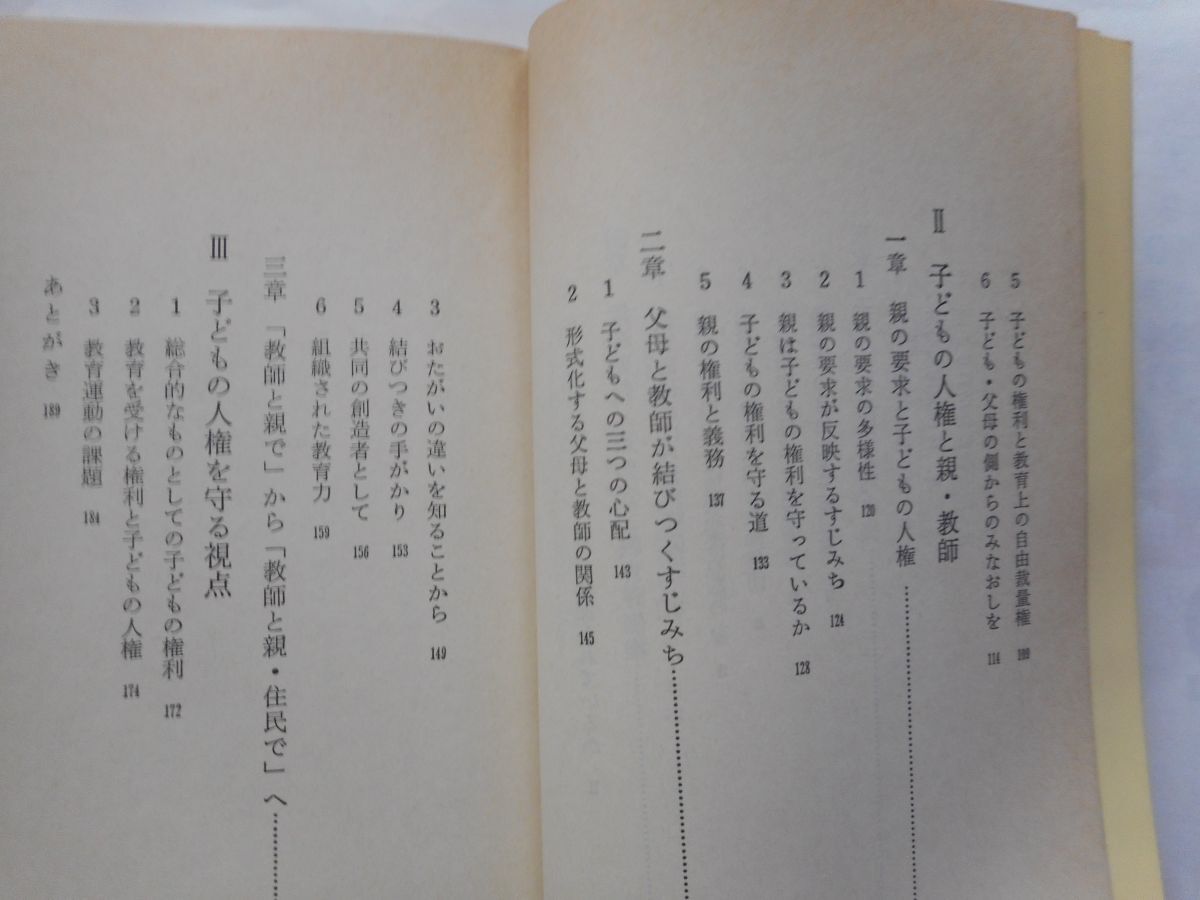 5 子どもの権利と教育上の自由裁量権 109
6 子ども・父母の側からのみなおしを 114
Ⅱ 子どもの人権と親・教師
一章 親の要求と子どもの人権
1 親の要求の多様性 120
2 親の要求が反映するすじみち 124
3 親は子どもの権利を守っているか 128
4 子どもの権利を守る道 133
5 親の権利と義務 137
二章 父母と教師が結びつくすじみち
1 子どもへの三つの心配 143
2 形式化する父母と教師の関係 145
3 おたがいの違いを知ることから 149
4 結びつきの手がかり 153
5 共同の創造者として 156
6 組織された教育力 159
三章 「教師と親で」から「教師と親・住民で」へ
Ⅲ 子どもの人権を守る視点
1 総合的なものとしての子どもの権利 172
2 教育を受ける権利と子どもの人権 174
3 教育運動の課題 184
あとがき 189